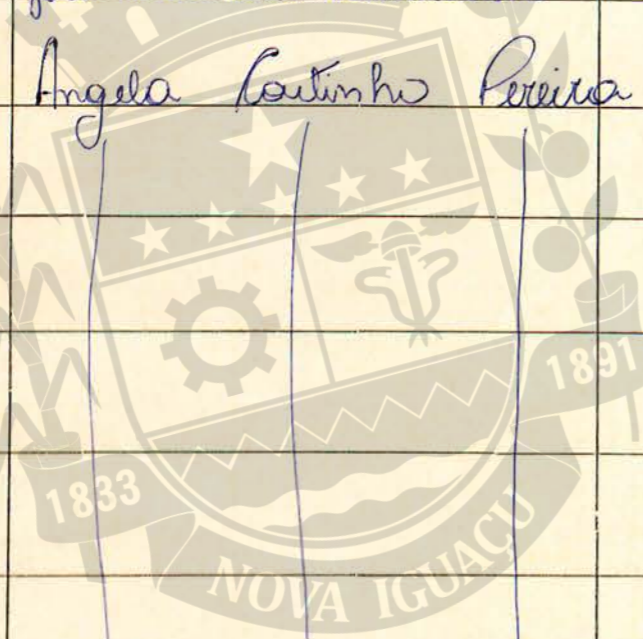 Angela Coutinho Pereira
1891
1833
NOVA IGUAÇU